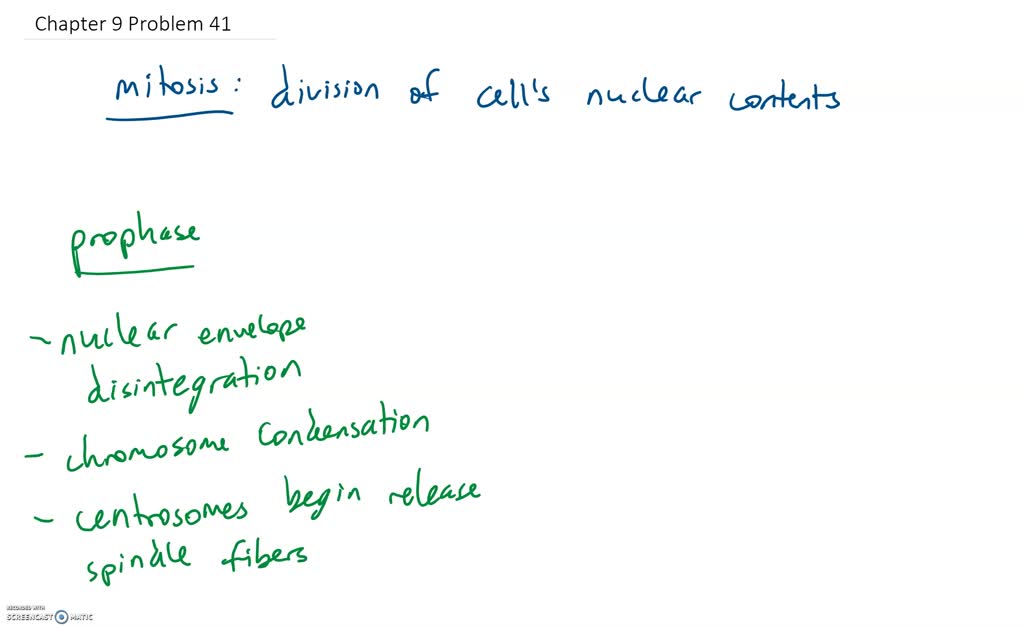 Chapter 9 Problem 41
mitosis: division of cell's nuclear contents
prophase
~ nuclear envelope
disintegration
- chromosome condensation
- centrosomes begin release
spindle fibers
RECORDED WITH
SCREENCAST MATIC